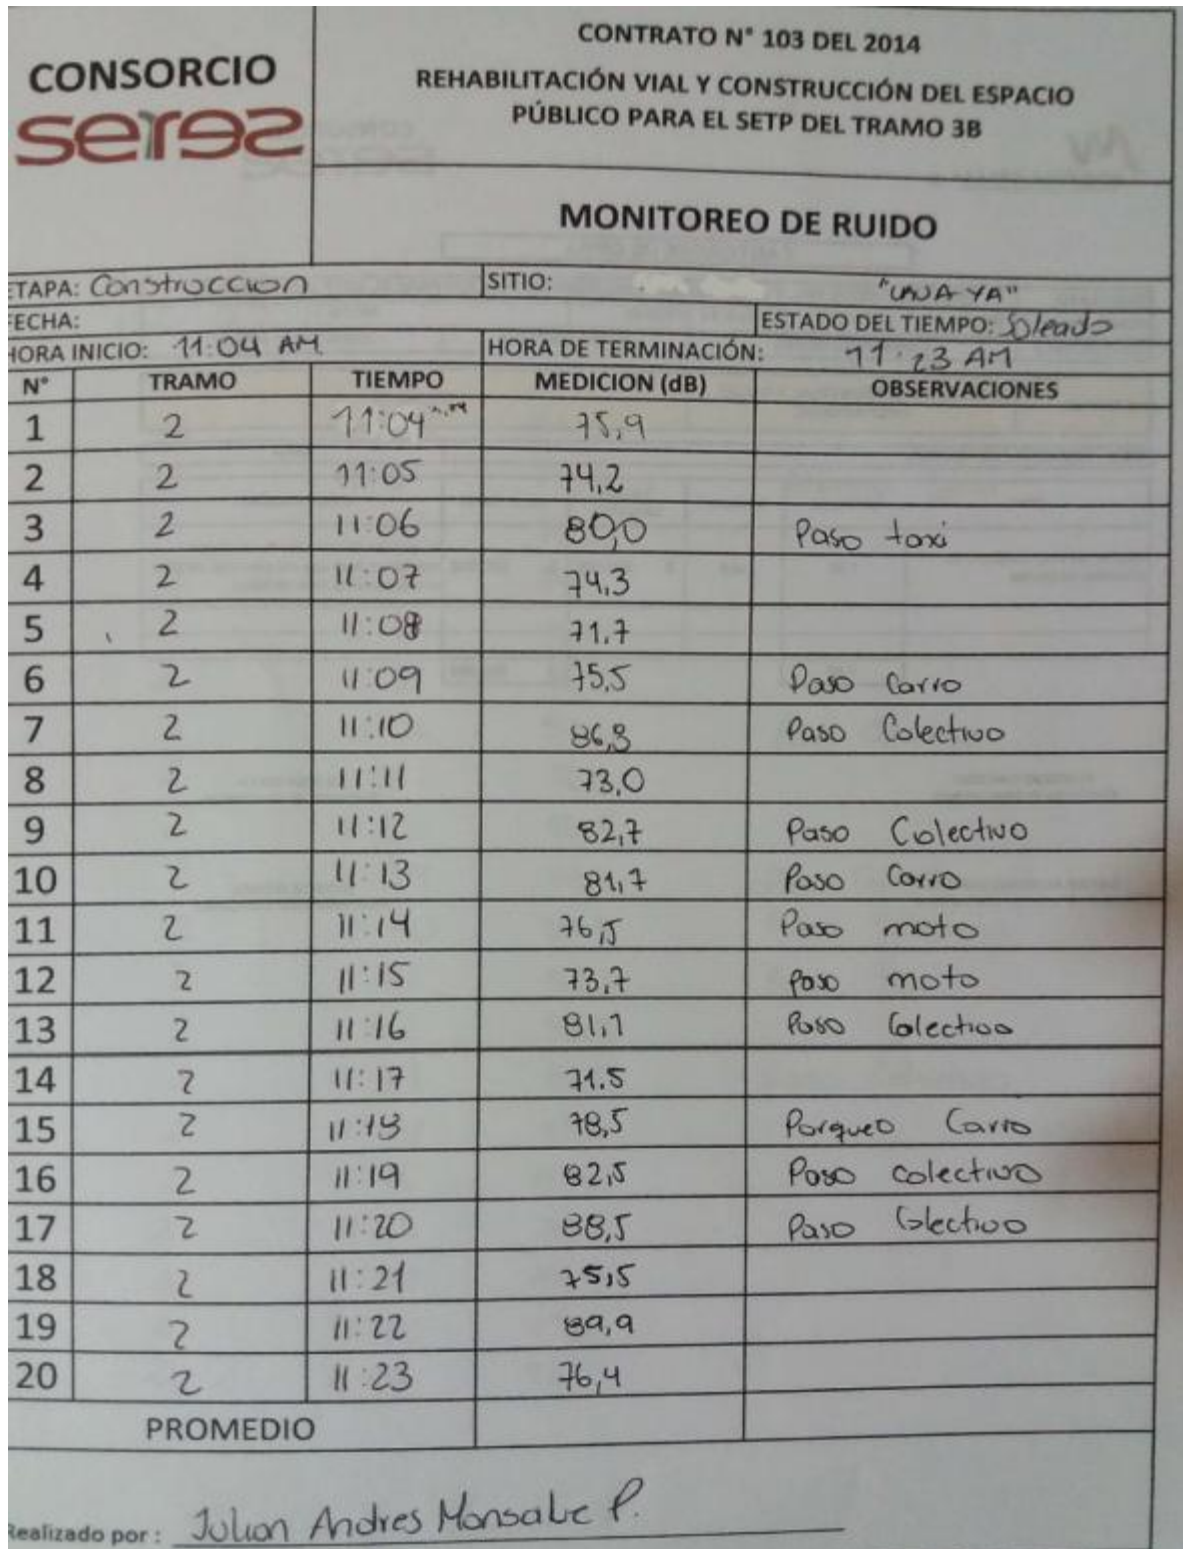 CONSORCIO
seres
CONTRATO N° 103 DEL 2014
REHABILITACIÓN VIAL Y CONSTRUCCIÓN DEL ESPACIO
PÚBLICO PARA EL SETP DEL TRAMO 3B
MONITOREO DE RUIDO
ETAPA: Construccion SITIO: "UNA YA"
FECHA: ESTADO DEL TIEMPO: Soleado
HORA INICIO: 11:04 AM HORA DE TERMINACIÓN: 11:23 AM
N° TRAMO TIEMPO MEDICION (dB) OBSERVACIONES
1 2 11:04 75,9
2 2 11:05 74,2
3 2 11:06 80,0 Paso taxi
4 2 11:07 74,3
5 2 11:08 71.7
6 2 11:09 75,5 Paso Carro
7 2 11:10 86,8 Paso Colectivo
8 2 11:11 73,0
9 2 11:12 82,7 Paso Colectivo
10 2 11:13 81,7 Paso Carro
11 2 11:14 76,5 Paso moto
12 2 11:15 73,7 Paso moto
13 2 11:16 81,1 Paso Colectivo
14 2 11:17 71.5
15 2 11:18 78,5 Parqueo Carro
16 2 11:19 82,5 Paso colectivo
17 2 11:20 88,5 Paso Colectivo
18 2 11:21 75,5
19 2 11:22 89,9
20 2 11:23 76,4
PROMEDIO
Realizado por : Julian Andres Monsalve P.